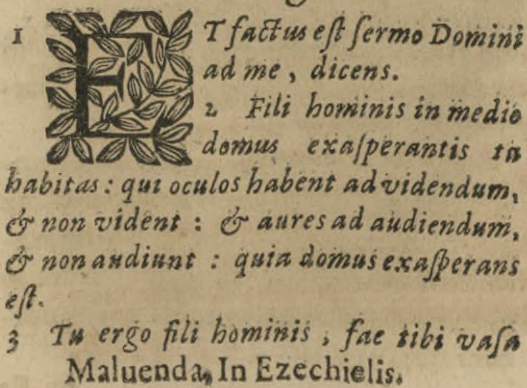 1 ET factus est sermo Domini
ad me, dicens.
2 Fili hominis in medio
domus exasperantis tu
habitas: qui oculos habent ad videndum,
& non vident: & aures ad audiendum,
& non audiunt: quia domus exasperans
est.
3 Tu ergo fili hominis, fac tibi vasa
Maluenda, In Ezechielis,